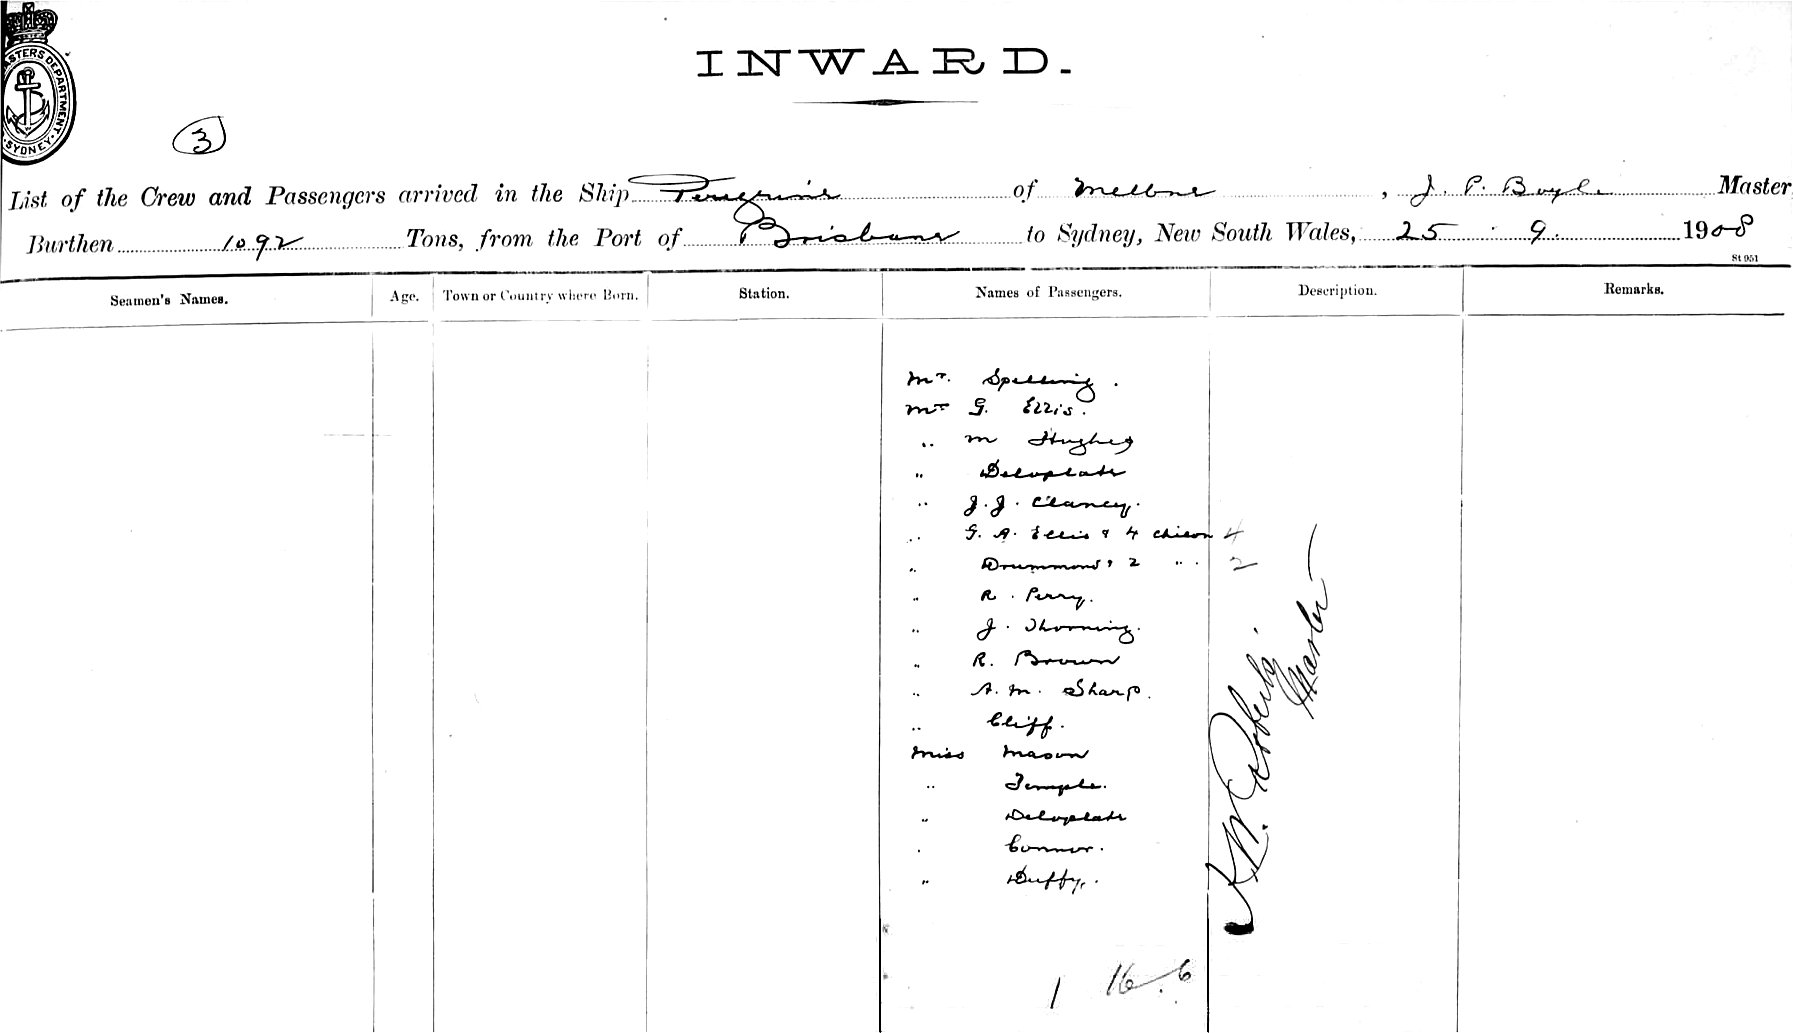 MASTERS DEPARTMENT · SYDNEY ·
INWARD.
3
List of the Crew and Passengers arrived in the Ship Peregrine of Melbne, J. P. Boyle Master
Burthen 1092 Tons, from the Port of Brisbane to Sydney, New South Wales, 25 . 9. 1908
St 951
Seamen's Names. Age. Town or Country where Born. Station. Names of Passengers. Description. Remarks.
Mr. Spelling.
Mrs G. Ellis.
" M Hughes
" Deloplate
" J. J. Clancy.
" G. A. Ellis & 4 chilon 4
" Drummond & 2 " 2
" R. Perry.
" J. Thorning.
" R. Brown
" A. M. Sharp.
" Cliff.
Miss Mason
" Temple.
" Deloplate
" Connor.
" Duffy.
Master
1 16. 6